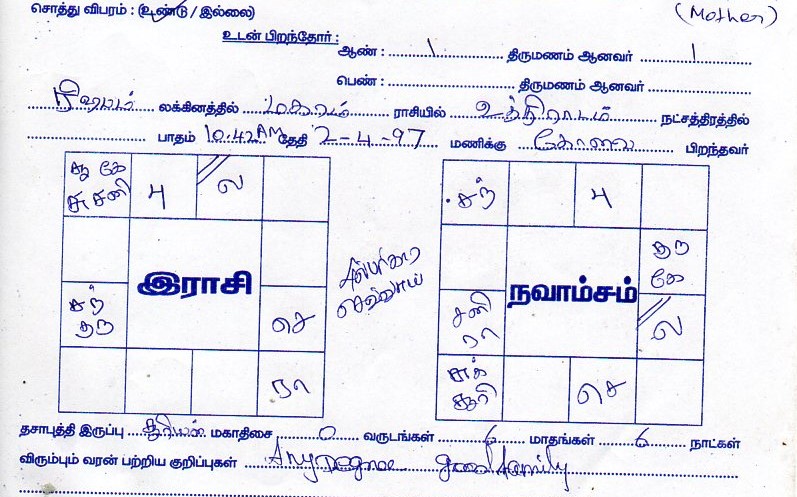 சொத்து விபரம் : (உண்டு / இல்லை) (Mother)
உடன் பிறந்தோர் :
ஆண் : 1 திருமணம் ஆனவர் 1
பெண் : திருமணம் ஆனவர்
ரிஷபம் லக்கினத்தில் மகரம் ராசியில் உத்திராடம் நட்சத்திரத்தில்
பாதம் 10.42 AM தேதி 2-4-97 மணிக்கு கோவை பிறந்தவர்
சூ கே பு ல
சு சனி
இராசி
சந்
குரு
செ
ரா
பரிகார
செவ்வாய்
சந் பு
குரு
கே
நவாம்சம்
சனி
ரா
ல
சுக்
சூரி
செ
தசாபுத்தி இருப்பு சூரியன் மகாதிசை 0 வருடங்கள் 6 மாதங்கள் 6 நாட்கள்
விரும்பும் வரன் பற்றிய குறிப்புகள் Any Degree good family